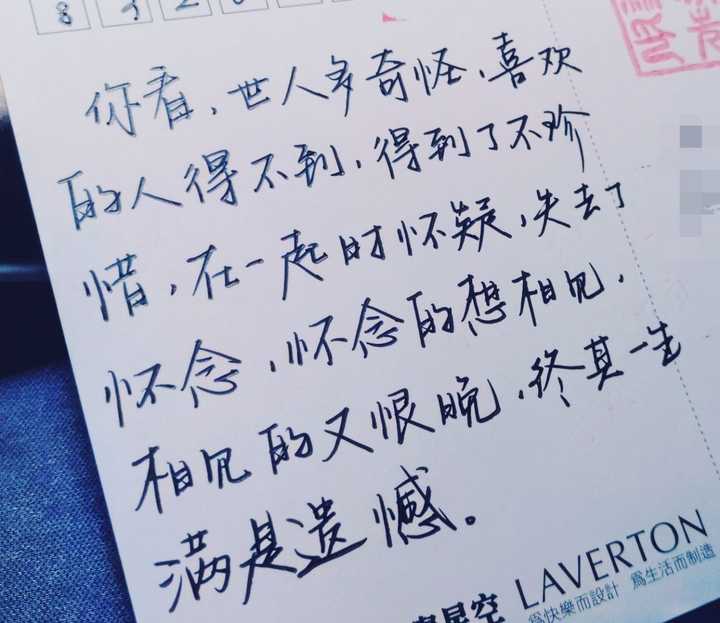 你看,世人多奇怪,喜欢
的人得不到,得到了不珍
惜,在一起时怀疑,失去了
怀念,怀念的想相见,
相见的又恨晚,终其一生
满是遗憾。
星空 LAVERTON
為快樂而設計 為生活而制造